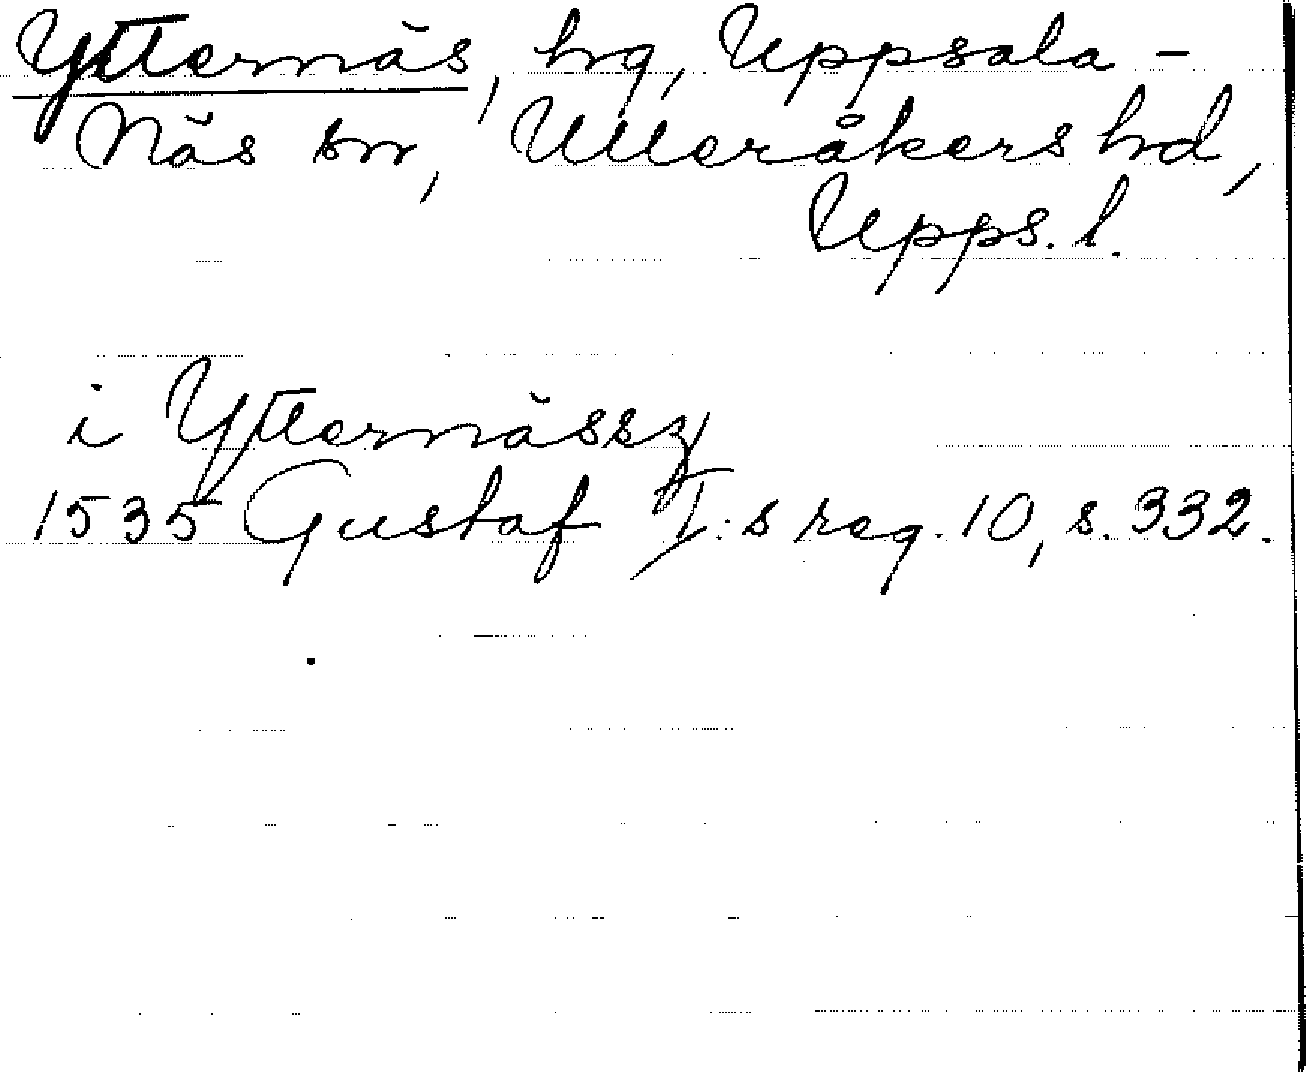 Ytternäs, hg, Uppsala-
Näs sn, Ulleråkers hd,
Upps. l.
i Ytternässz
1535 Gustaf I:s reg. 10, s. 332.